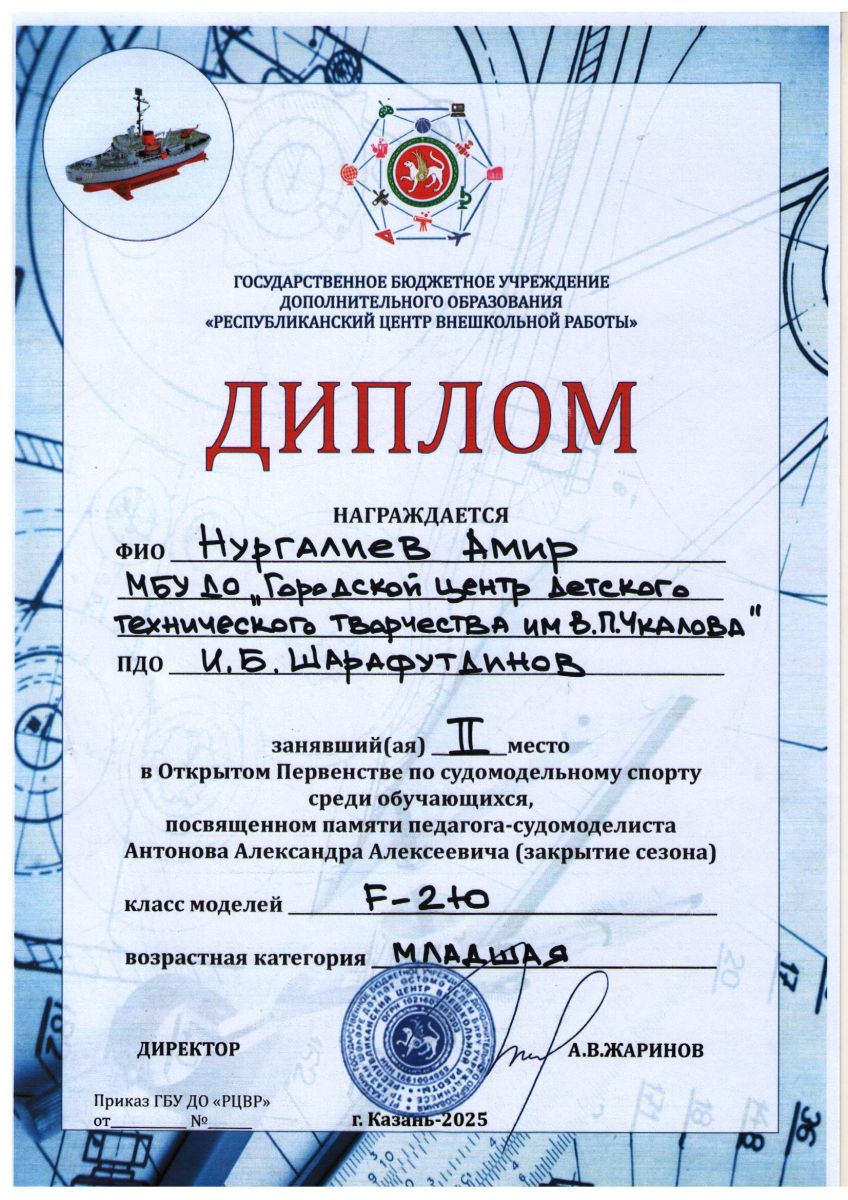 ГОСУДАРСТВЕННОЕ БЮДЖЕТНОЕ УЧРЕЖДЕНИЕ
ДОПОЛНИТЕЛЬНОГО ОБРАЗОВАНИЯ
«РЕСПУБЛИКАНСКИЙ ЦЕНТР ВНЕШКОЛЬНОЙ РАБОТЫ»
ДИПЛОМ
НАГРАЖДАЕТСЯ
ФИО Нургалиев Амир
МБУ ДО „Городской центр детского
технического творчества им В.П.Чкалова"
ПДО И.Б. Шарафутдинов
занявший(ая) II место
в Открытом Первенстве по судомодельному спорту
среди обучающихся,
посвященном памяти педагога-судомоделиста
Антонова Александра Алексеевича (закрытие сезона)
класс моделей F-2Ю
возрастная категория младшая
ДИРЕКТОР А.В.ЖАРИНОВ
Приказ ГБУ ДО «РЦВР»
от__________ №______
г. Казань-2025
17
20
36
48
18
171